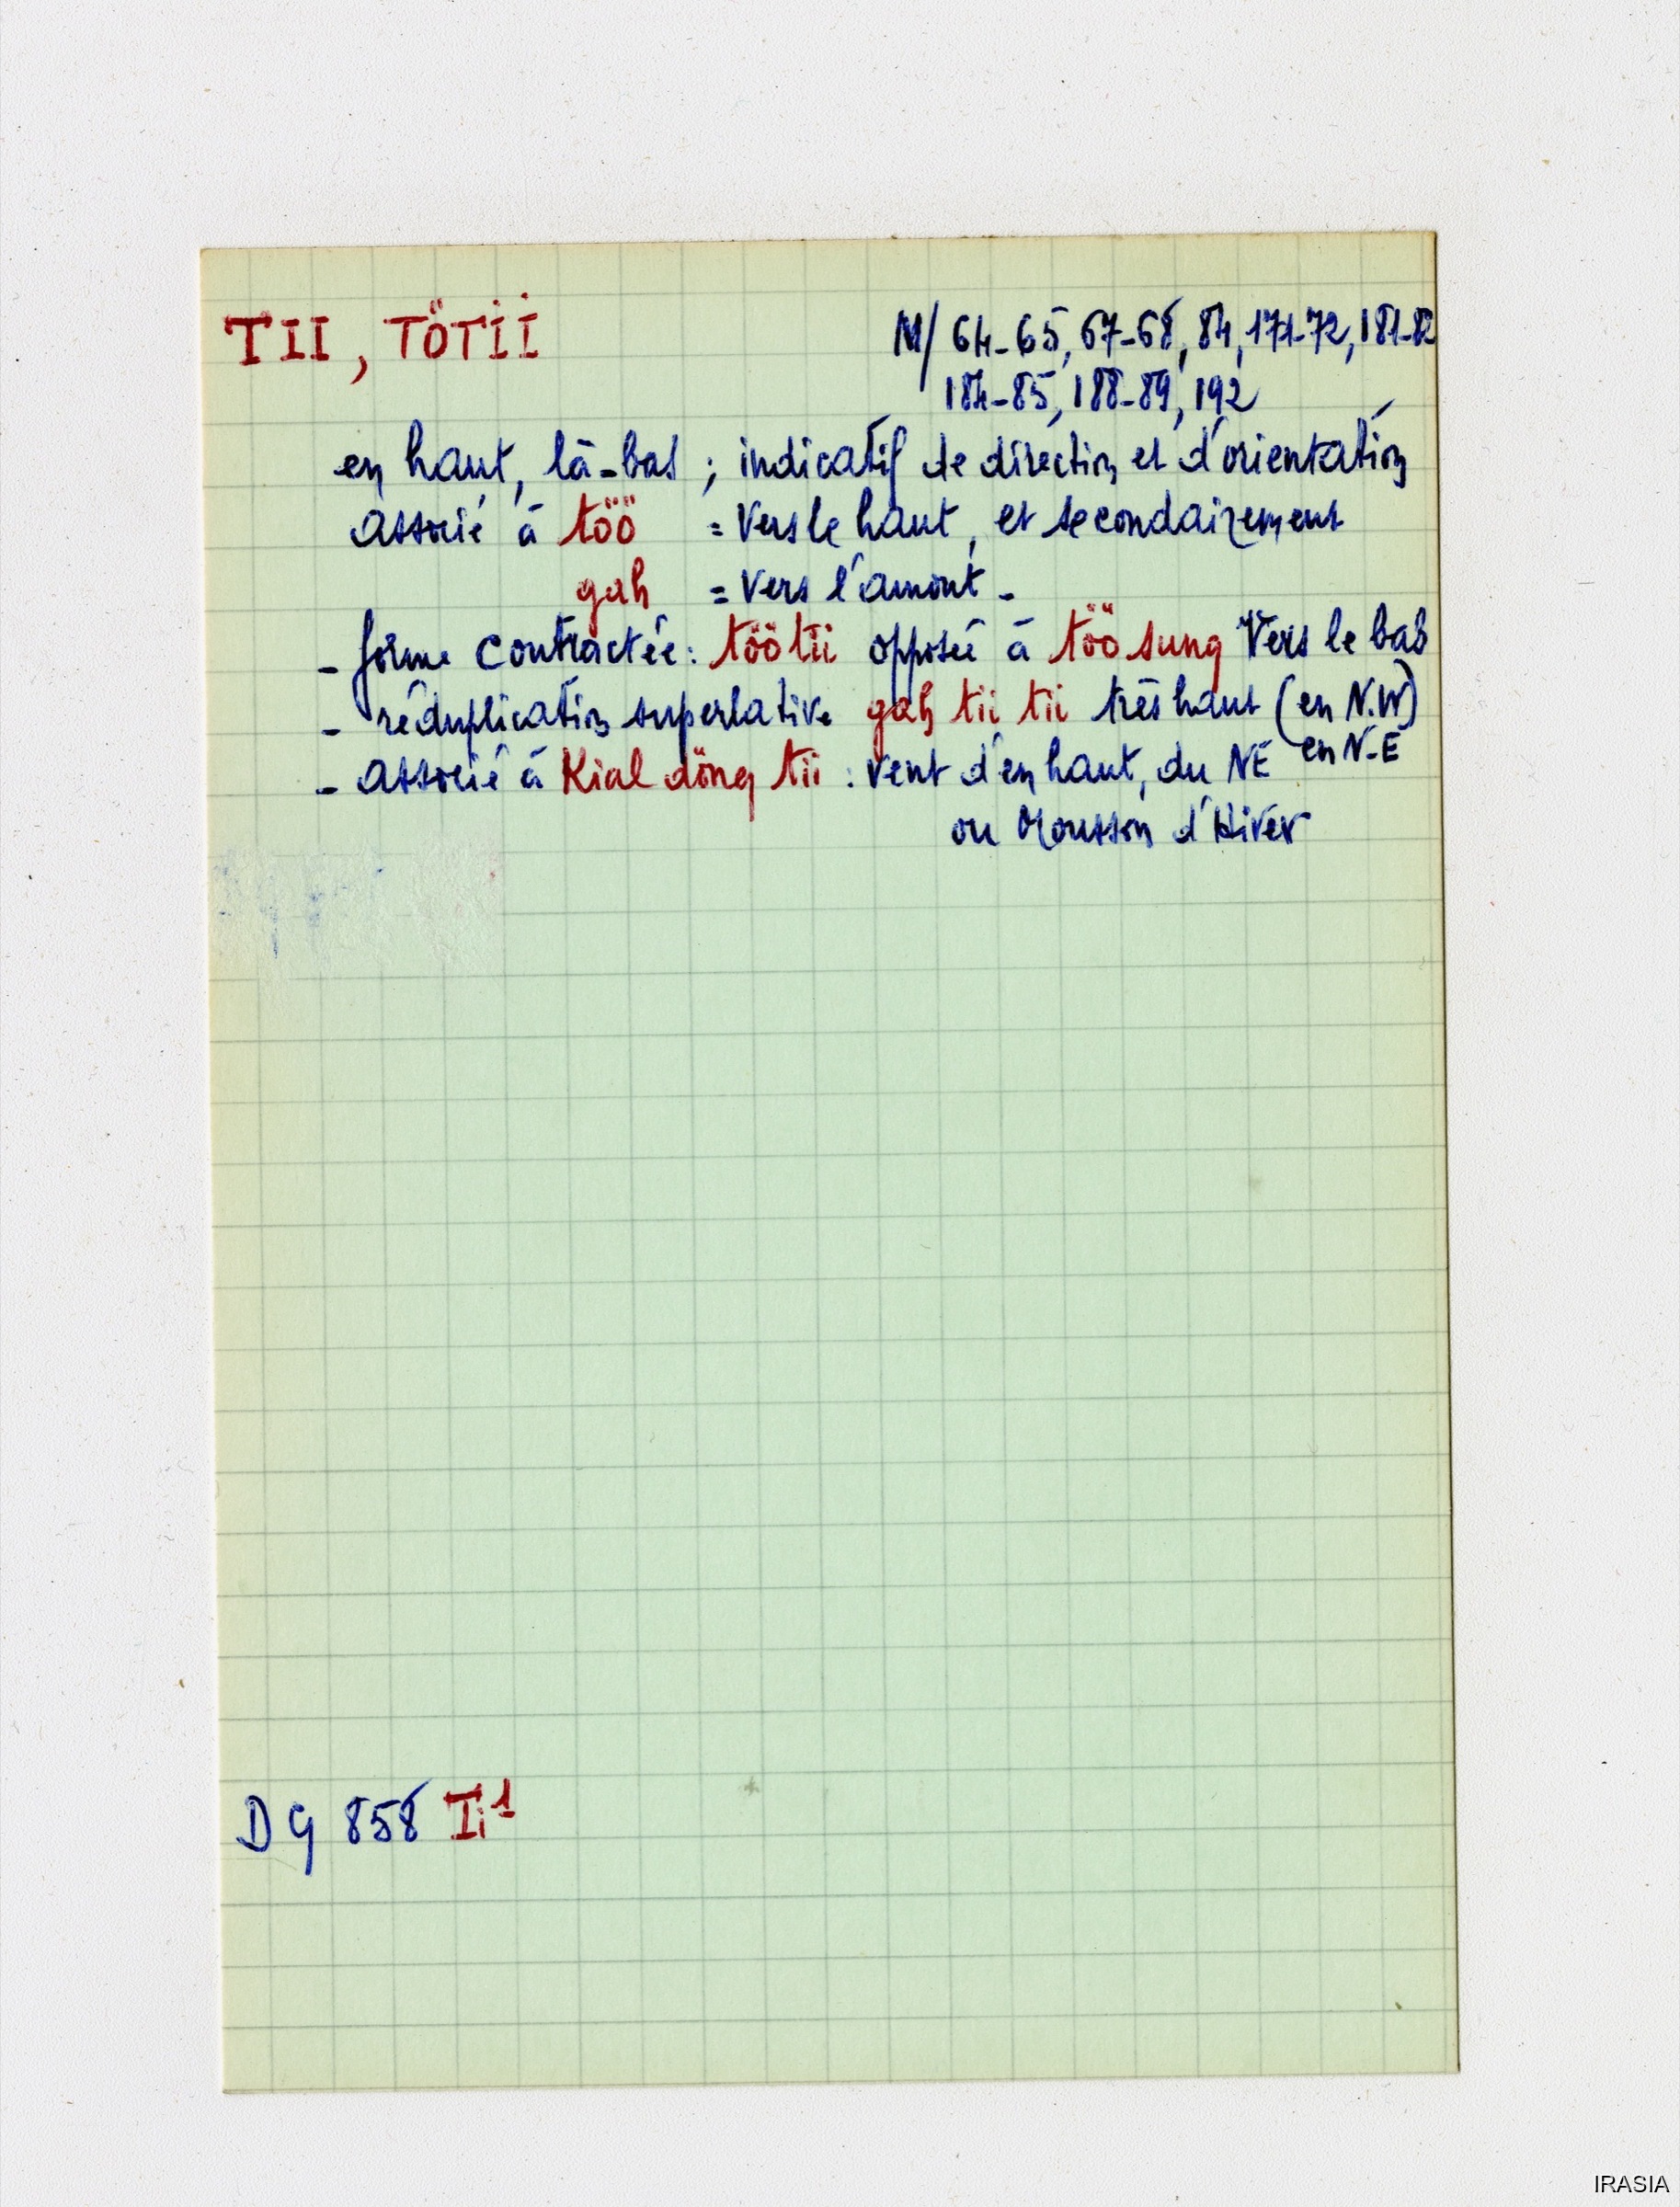 TII, TÖTII
M/ 64-65, 67-68, 84, 171-72, 181-82
184-85, 188-89, 192
en haut, là-bas ; indicatif de direction et d'orientation
associé à töö = vers le haut, et secondairement
gah = vers l'amont -
- forme contractée: töötii opposée à töösung Vers le bas
- réduplication superlative gah tii tii très haut (en N.W)
en N-E
- associé à Kial döng tii : vent d'en haut, du NE
ou Mousson d'Hiver
DG 858 Ti¹
IRASIA